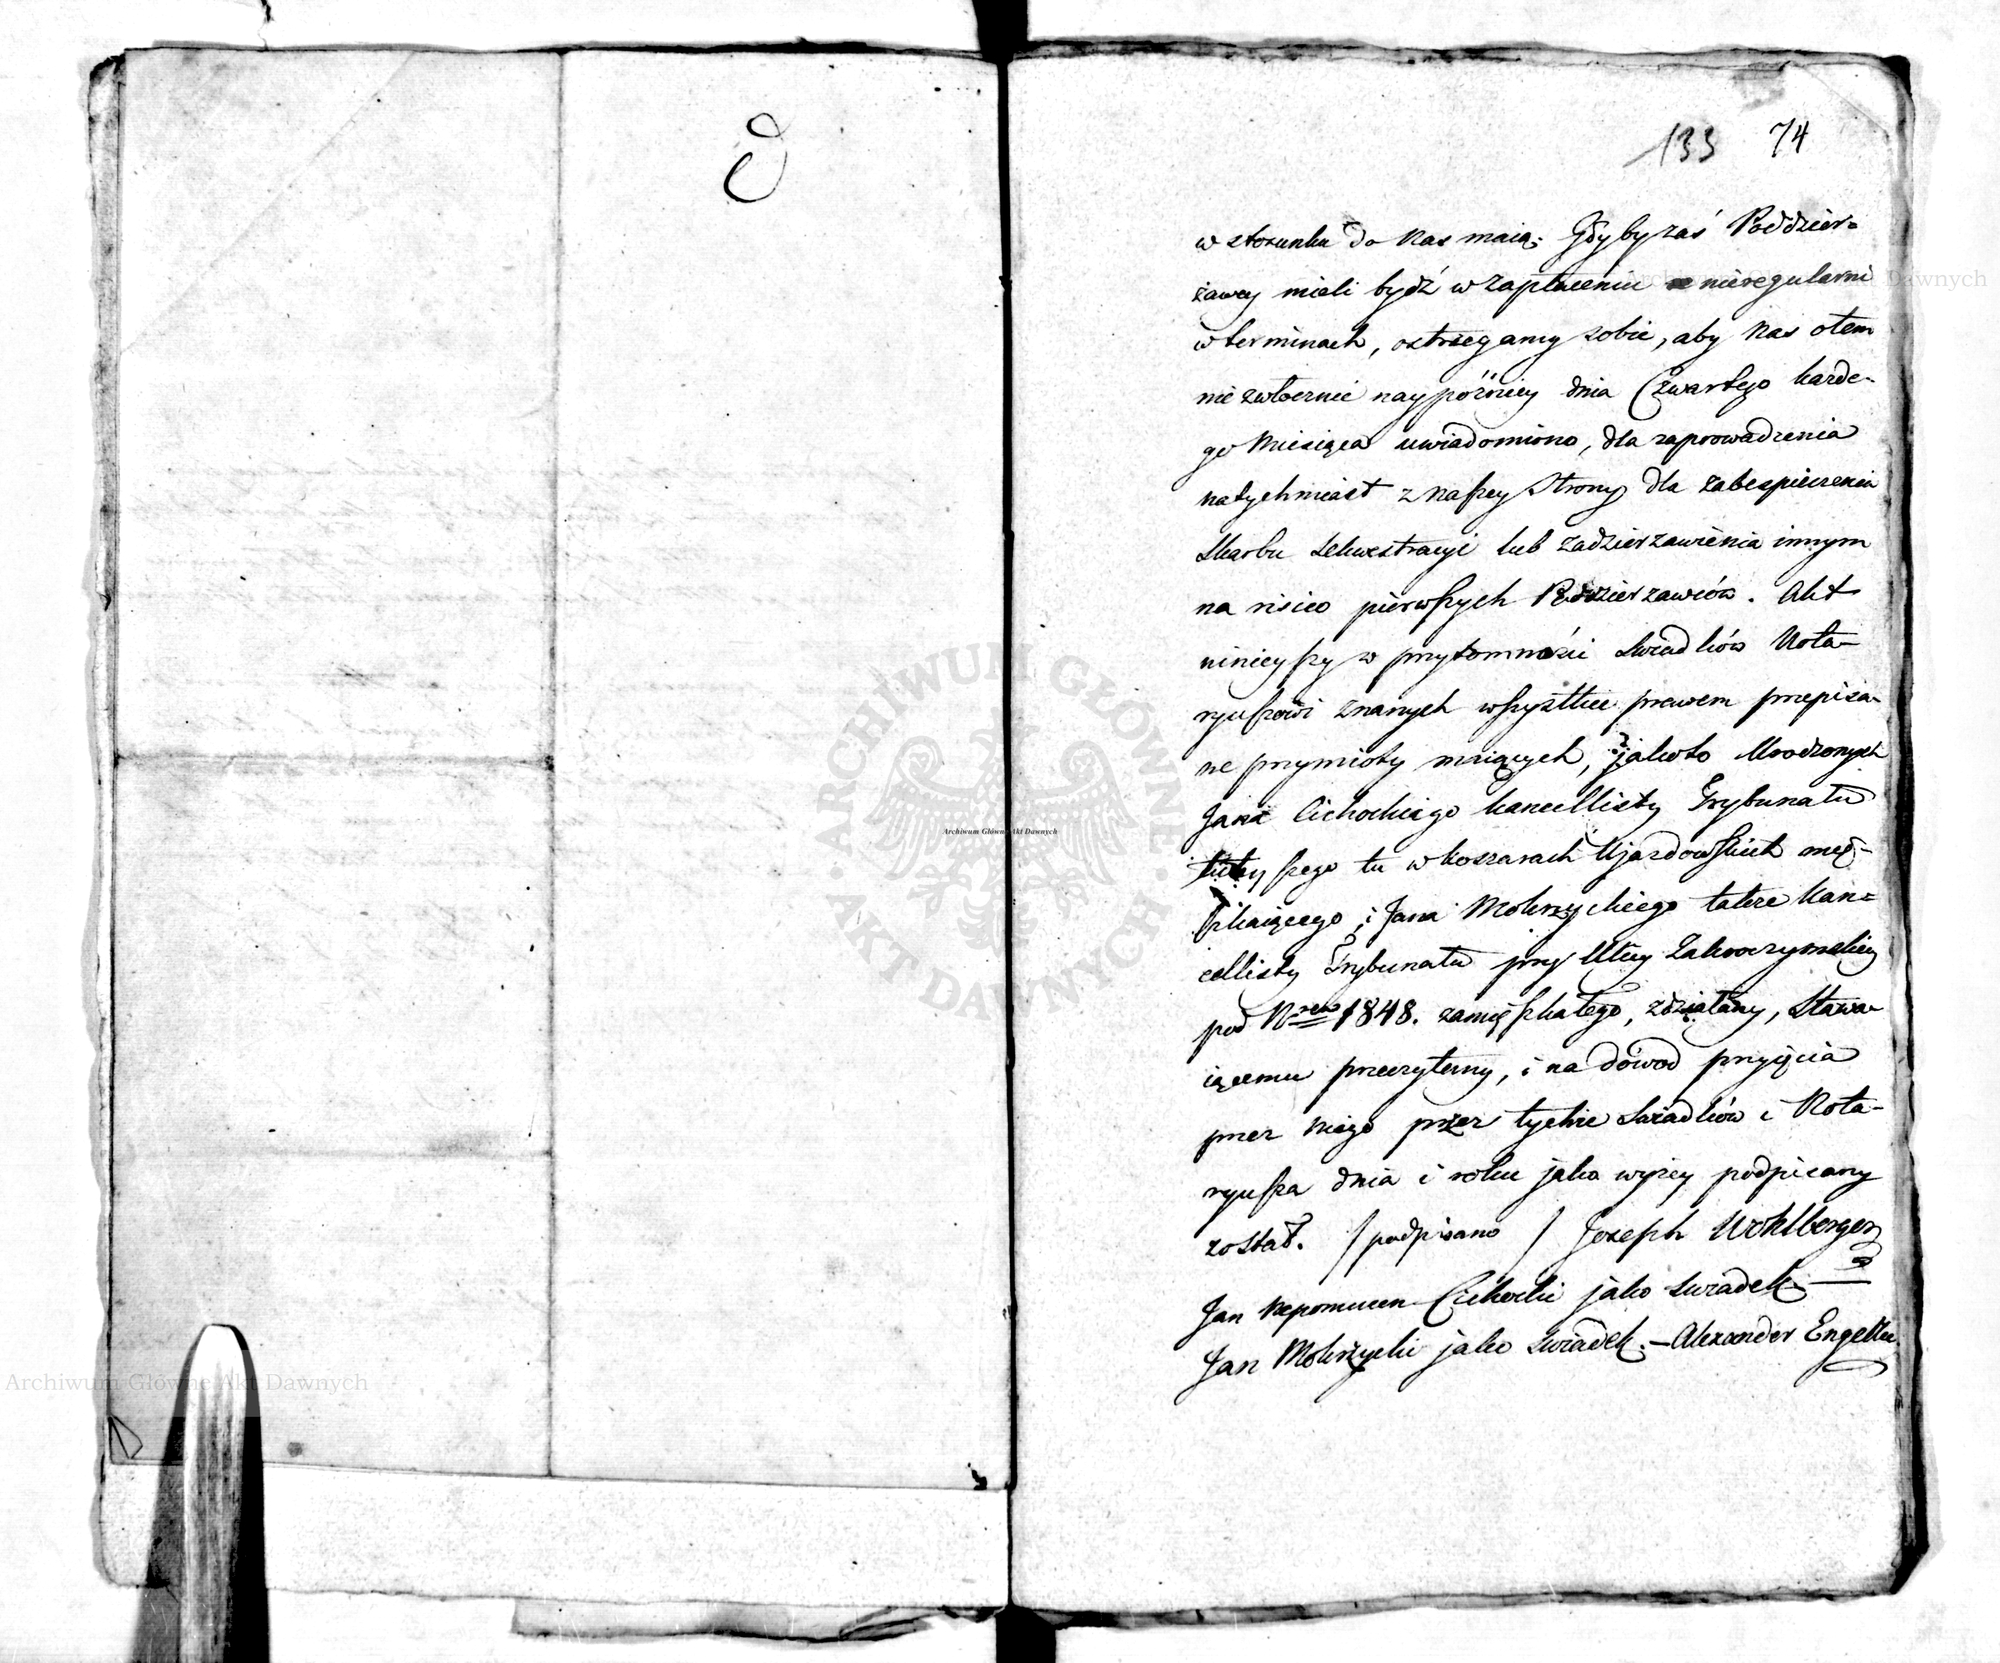 133 74
w stosunku do Nas maią. Gdyby zaś Poddzier=
żawcy mieli bydź w zapłaceniu nieregularni
w terminach, ostrzegamy sobie, aby Nas otem
nie zwłocznie naypóźniey dnia Czwartego każde-
go Miesiąca uwiadomiono, dla zaprowadzenia
natychmiast z naszey Strony dla zabespieczenia
Skarbu Sekwestracyi lub zadzierzawienia innym
na risico pierwszych Poddzierzawców. Akt
ninieyszy w przytomności Swiadków Nota-
ryuszowi znanych wszystkie prawem przepisa-
ne przymioty maiących, jakoto Urodzonych
Jana Cichockiego kancellisty Trybunału
tuteyszego tu w koszarach Ujazdowskich mię-
szkaiącego, i Jana Mokrzyckiego także kan=
cellisty Trybunału przy Ulicy Zakroczymskiey
pod Nrem 1848. zamięszkałego, zdziałany, Stawa-
iącemu przeczytany, i na dowod przyięcia
przez niego przez tychże Swiadków i Nota-
ryusza dnia i roku jako wyżey podpisany
został. / podpisano / Jozeph Wohlberger
Jan Nepomucen Cichocki jako Swiadek —
Jan Mokrzycki jako Swiadek. — Alexander Engelke
Archiwum Główne Akt Dawnych
ARCHIWUM GŁÓWNE · AKT DAWNYCH ·
Archiwum Główne Akt Dawnych
Archiwum Główne Akt Dawnych